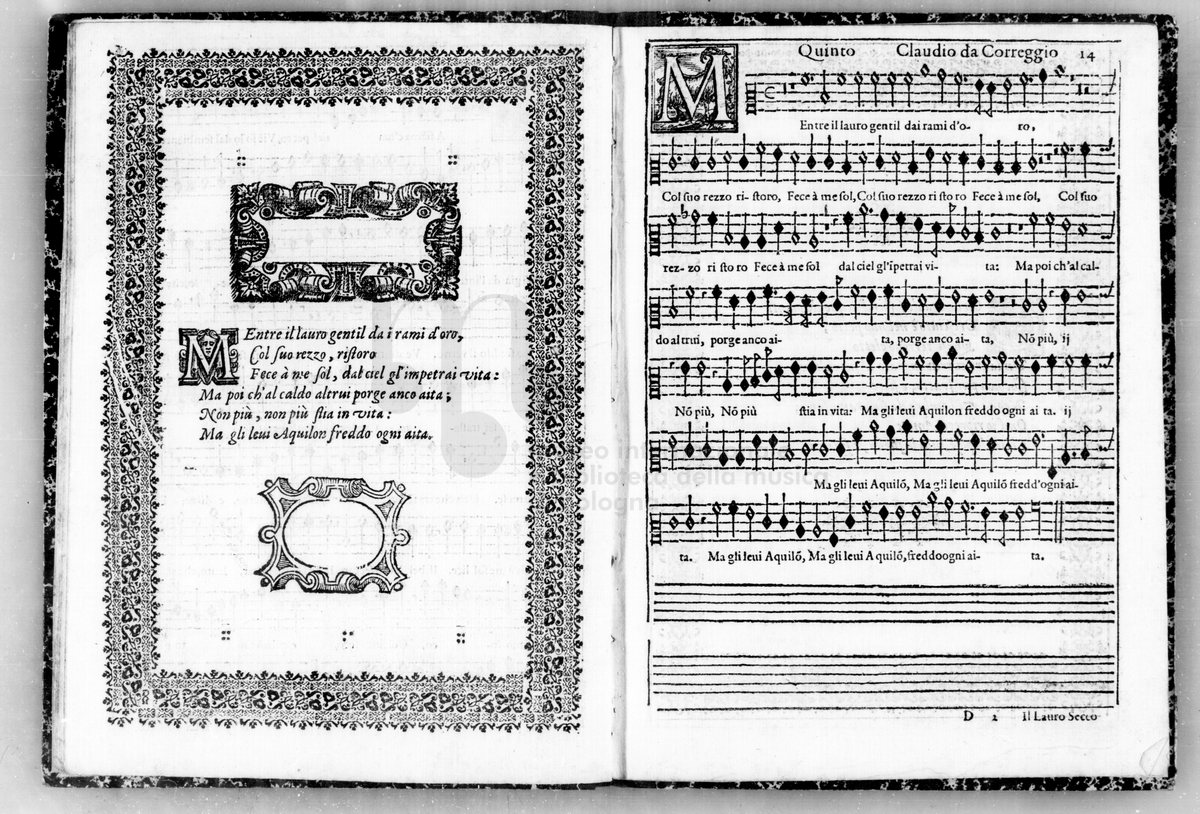 MEntre il lauro gentil da i rami d'oro,
Col suo rezzo, ristoro
Fece à me sol, dal ciel gl'impetrai vita:
Ma poi ch'al caldo altrui porge anco aita;
Non più, non più stia in vita:
Ma gli leui Aquilon freddo ogni aita.
Quinto Claudio da Correggio 14
M
Entre il lauro gentil dai rami d'o- ro,
Col suo rezzo ri- storo, Fece à me sol, Col suo rezzo ri sto ro Fece à me sol, Col suo
rez- zo ri sto ro Fece à me sol dal ciel gl'ĩpetrai vi- ta: Ma poi ch'al cal-
do altrui, porge anco ai- ta, porge anco ai- ta, Nõ più, ij
Nõ più, Nõ più stia in vita: Ma gli leui Aquilon freddo ogni ai ta. ij
Ma gli leui Aquilõ, Ma gli leui Aquilõ fredd'ogni ai-
ta. Ma gli leui Aquilõ, Ma gli leui Aquilõ, freddo ogni ai- ta.
D 2 Il Lauro Secco
museo int
biblioteca della musica
bologna